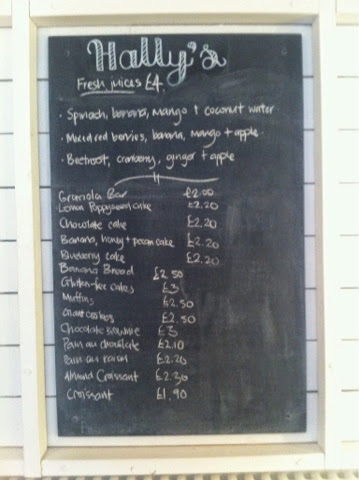 Hally's
Fresh juices £4
· Spinach, banana, mango + coconut water
· Mixed red berries, banana, mango + apple
· Beetroot, cranberry, ginger + apple
Granola Bar £2.00
Lemon Poppyseed cake £2.20
Chocolate cake £2.20
Banana, honey + pecan cake £2.20
Blueberry cake £2.20
Banana Bread £2.50
Gluten-free cakes £3
Muffins £2.50
£2.50
Chocolate Brownie £3
Pain au chocolate £2.10
Pain au raisin £2.20
Almond Croissant £2.30
Croissant £1.90